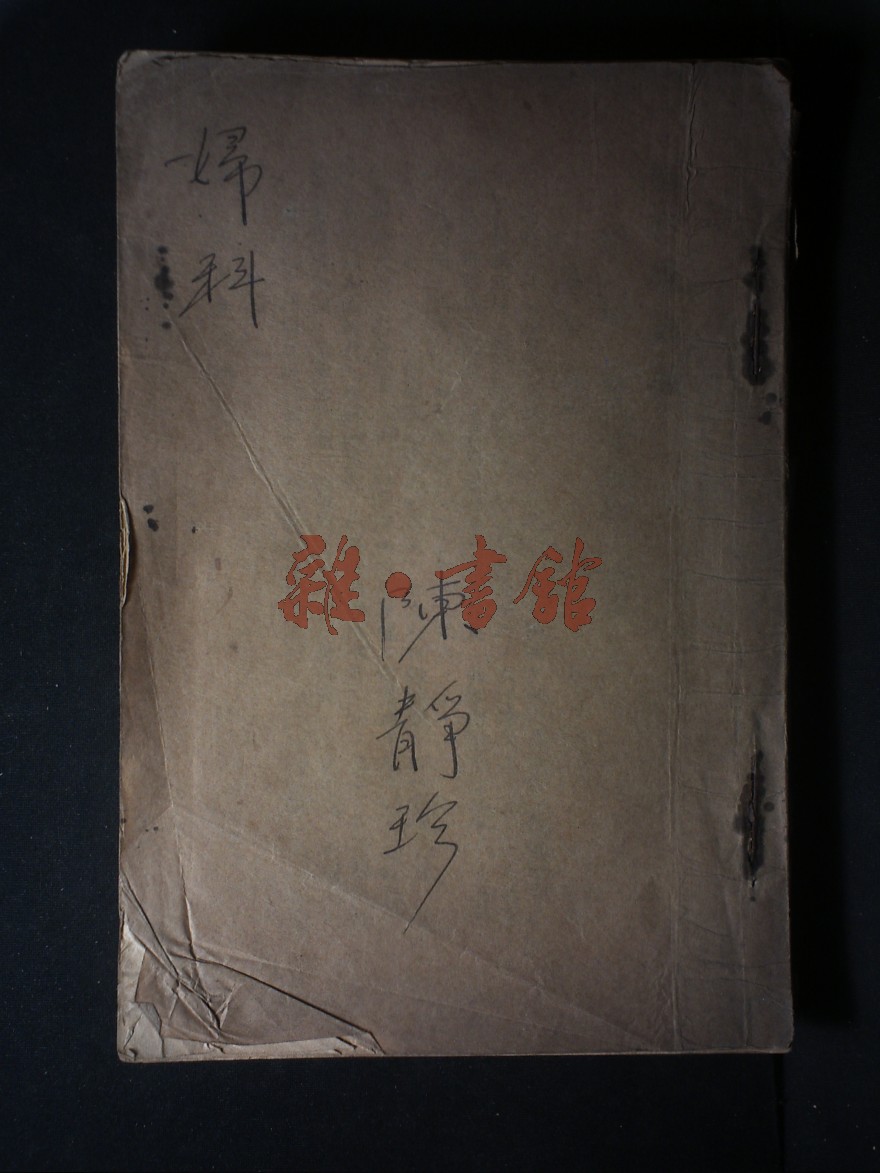 婦科
陳靜珍
雜·書館